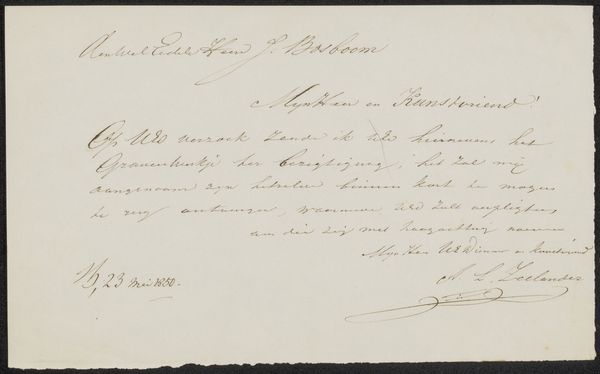 Aan Wel Edele Heer J. Bosboom
Mijn Heer en Kunstvriend!
Op UEd verzoek zende ik UEd hiernevens het
Gravenwerkje ter bezigtiging; het zal mij
aangenaam zijn hetzelve binnen kort te mogen
te rug ontvangen, waarmede UEd zult verpligten,
am die zig met hoogachting noemen
Mijn Heer UEd Dienaar en kunstvriend
A. L. Zeelander
23 Mei 1850.